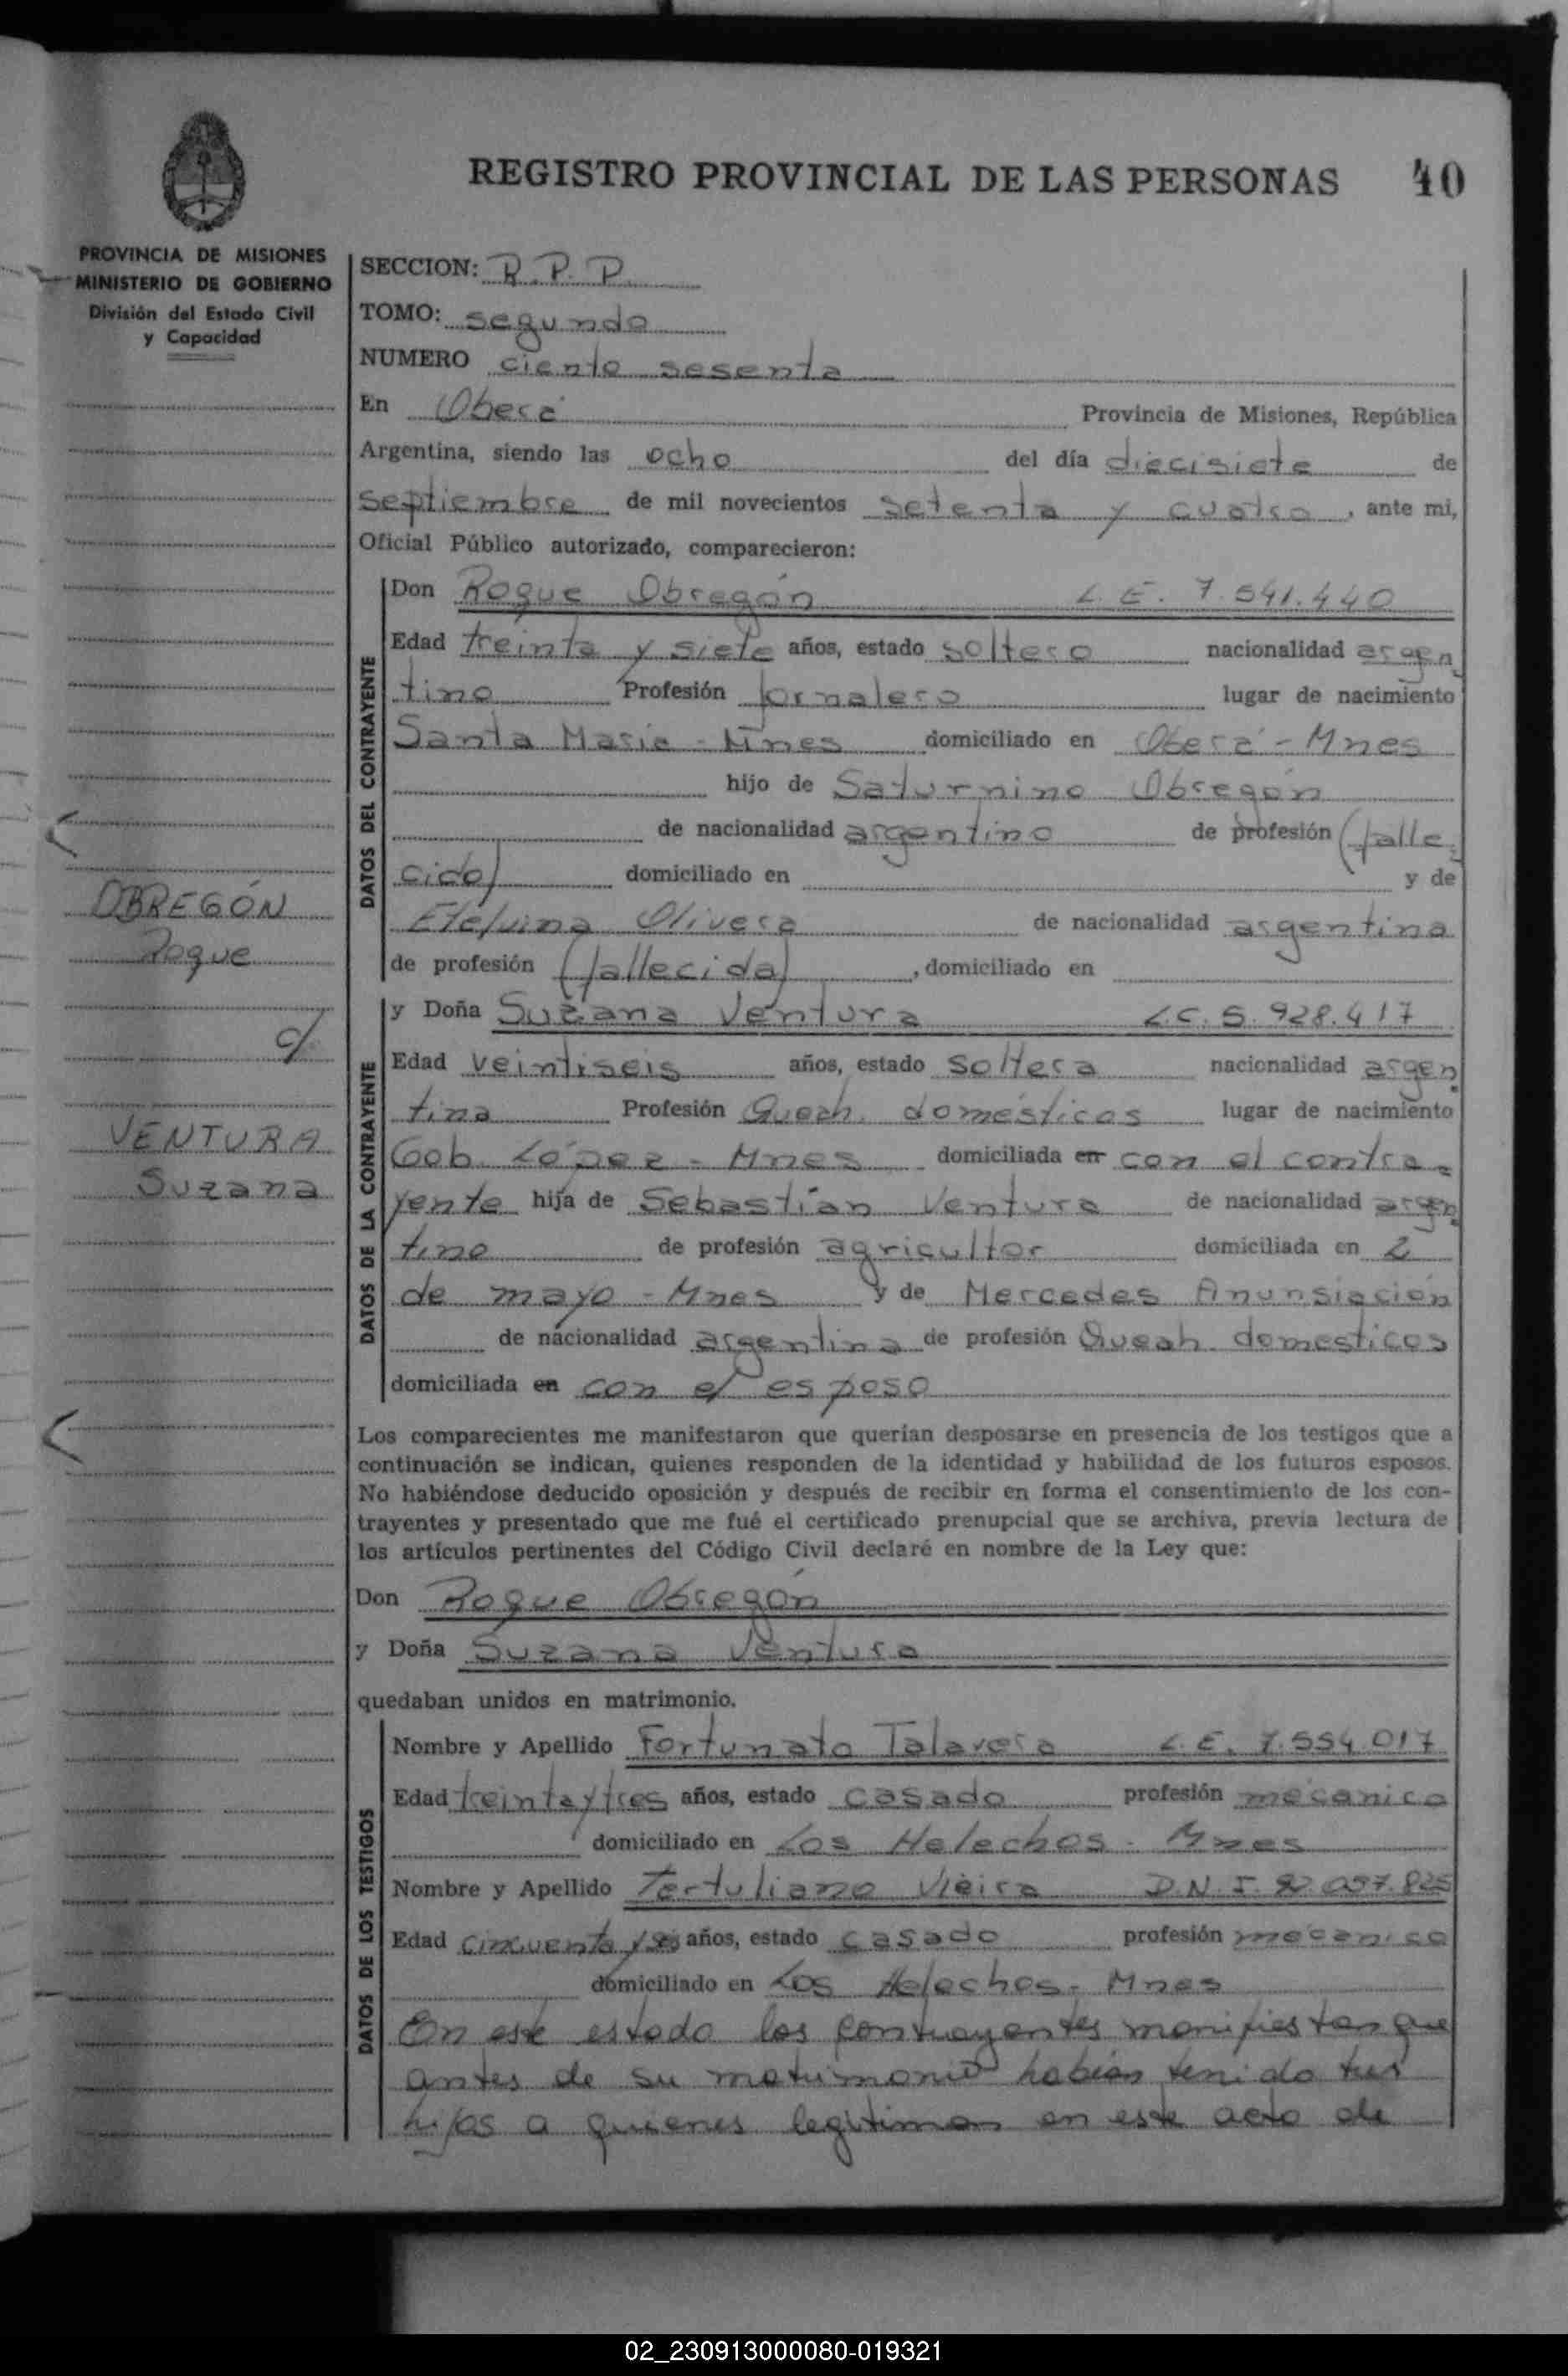 REGISTRO PROVINCIAL DE LAS PERSONAS 40
PROVINCIA DE MISIONES
MINISTERIO DE GOBIERNO
División del Estado Civil
y Capacidad
OBREGÓN
Roque
c/
VENTURA
Suzana
SECCION: R.P.P.
TOMO: segundo
NUMERO ciento sesenta
En Oberá Provincia de Misiones, República
Argentina, siendo las ocho del día diecisiete de
septiembre de mil novecientos setenta y cuatro, ante mi,
Oficial Público autorizado, comparecieron:
DATOS DEL CONTRAYENTE
Don Roque Obregón L.E. 7.541.440
Edad treinta y siete años, estado soltero nacionalidad argen
tino Profesión jornalero lugar de nacimiento
Santa María - Mnes domiciliado en Oberá - Mnes
hijo de Saturnino Obregón
de nacionalidad argentino de profesión (falle
cido) domiciliado en y de
Etelvina Olivera de nacionalidad argentina
de profesión (fallecida), domiciliado en
DATOS DE LA CONTRAYENTE
y Doña Suzana Ventura L.C. 5.928.417
Edad veintiseis años, estado soltera nacionalidad argen
tina Profesión Queah. domésticos lugar de nacimiento
Gob. López - Mnes domiciliada en con el contra
yente hija de Sebastián Ventura de nacionalidad argen
tino de profesión agricultor domiciliada en 2
de mayo - Mnes y de Mercedes Anunsiación
de nacionalidad argentina de profesión Queah. domesticos
domiciliada en con el esposo
Los comparecientes me manifestaron que querían desposarse en presencia de los testigos que a
continuación se indican, quienes responden de la identidad y habilidad de los futuros esposos.
No habiéndose deducido oposición y después de recibir en forma el consentimiento de los con-
trayentes y presentado que me fué el certificado prenupcial que se archiva, previa lectura de
los artículos pertinentes del Código Civil declaré en nombre de la Ley que:
Don Roque Obregón
y Doña Suzana Ventura
quedaban unidos en matrimonio.
DATOS DE LOS TESTIGOS
Nombre y Apellido Fortunato Talavera L.E. 7.554.017
Edad treinta y tres años, estado casado profesión mecánico
domiciliado en Los Helechos - Mnes
Nombre y Apellido Tertuliano Vieira D.N.I. 92.057.825
Edad cincuenta y años, estado casado profesión mecánico
domiciliado en Los Helechos - Mnes
En este estado los contrayentes manifiestan que
antes de su matrimonio habían tenido tres
hijos a quienes legitiman en este acto de
02_230913000080-019321